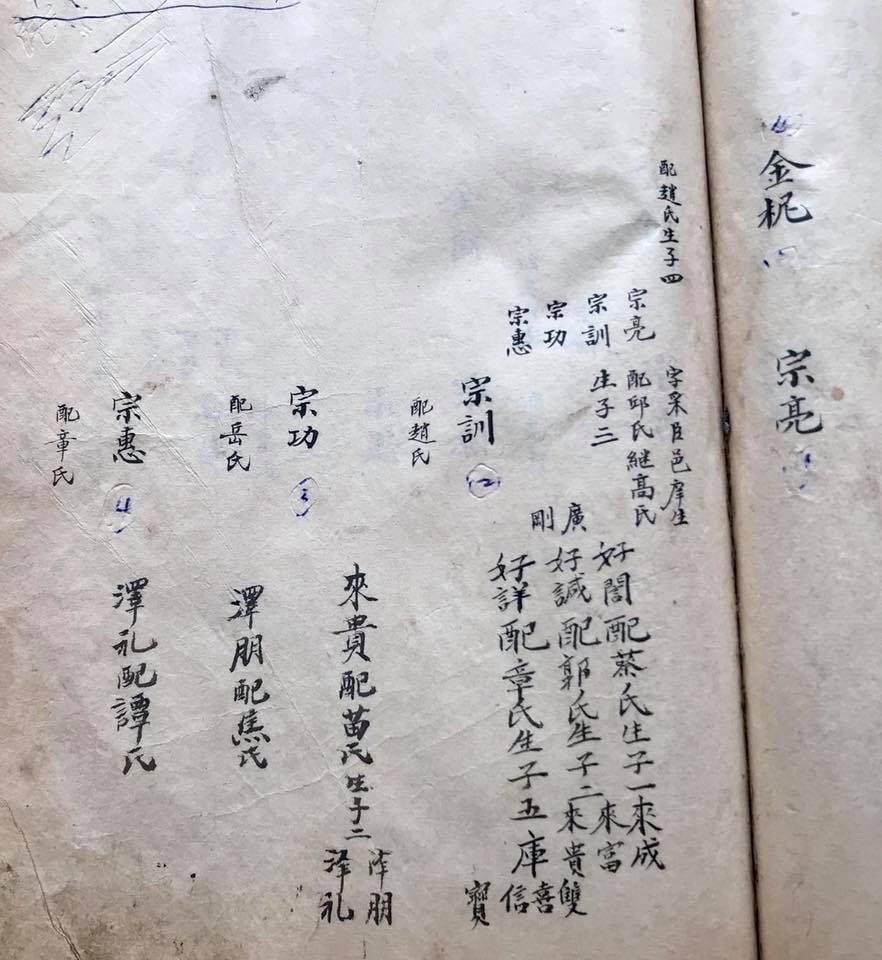 金柅
宗亮
配趙氏生子四
宗亮
宗訓
宗功
宗惠
字采臣邑庠生
配邱氏繼高氏
生子三
好誾配蔡氏生子一來成
好誠配郭氏生子二來富
來貴
好詳配章氏生子五庫
雙
喜
信
寶
廣
剛
宗訓
(二)
配趙氏
來貴配苗氏生子二
泽朋
泽礼
宗功
(3)
配岳氏
澤朋配焦氏
宗惠
(4)
配章氏
澤礼配譚氏